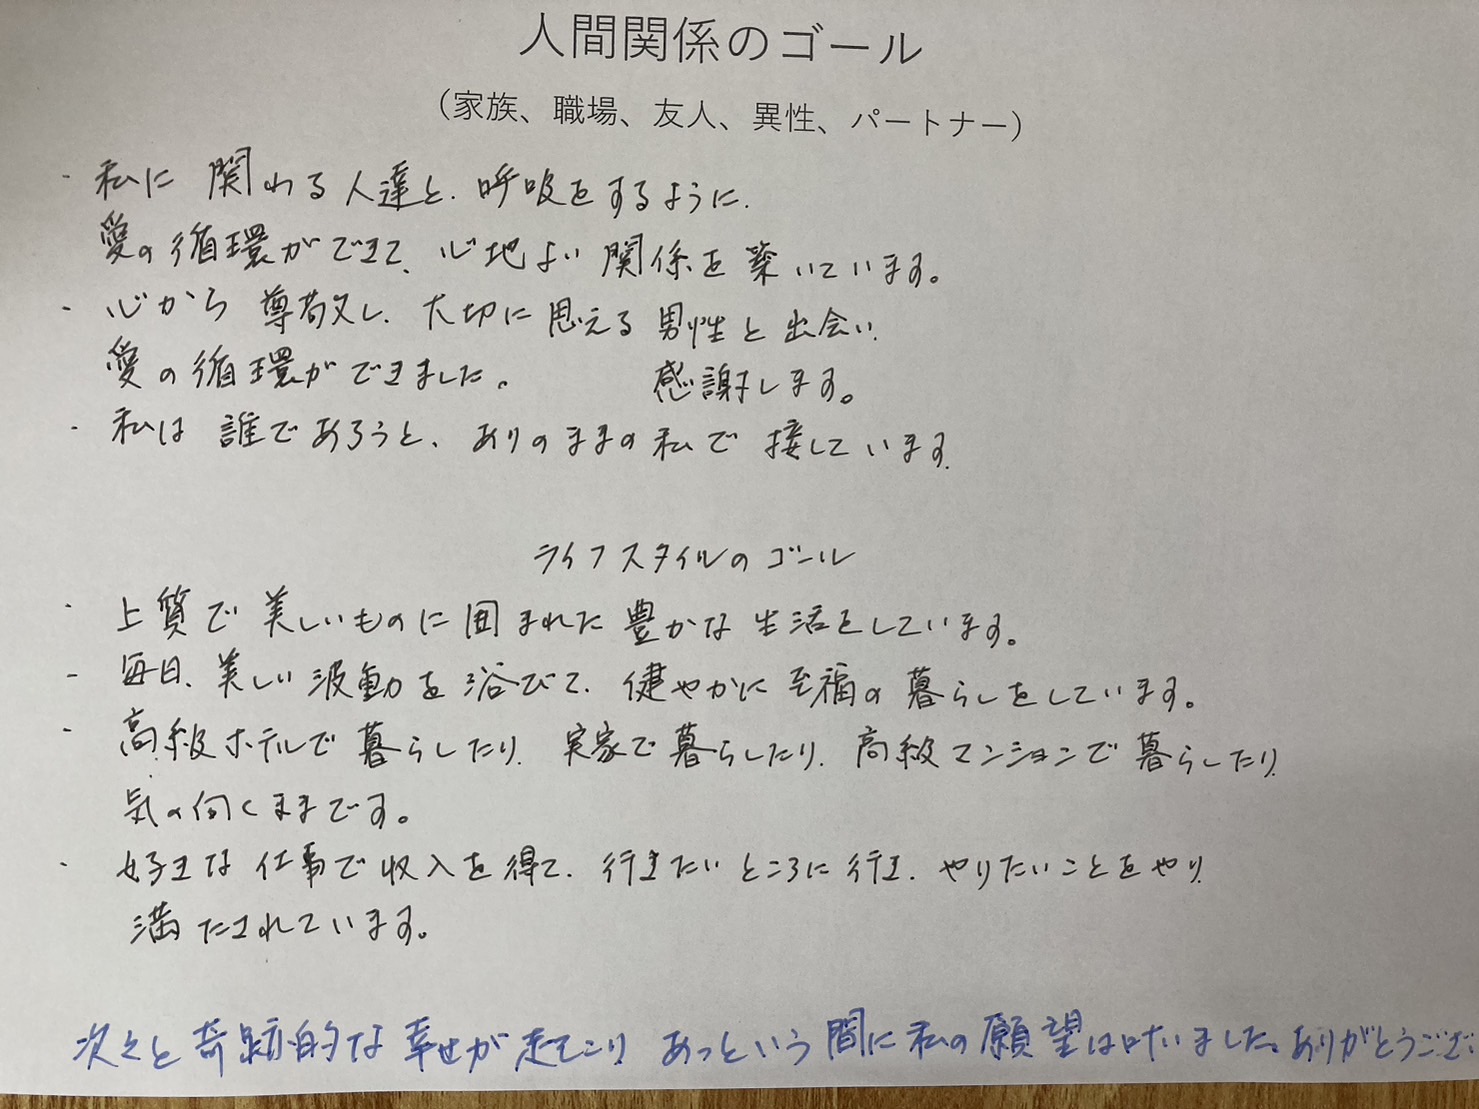 人間関係のゴール
（家族、職場、友人、異性、パートナー）
・私に関わる人達と、呼吸をするように、
愛の循環ができて、心地よい関係を築いています。
・心から尊敬し、大切に思える男性と出会い、
愛の循環ができました。 感謝します。
・私は誰であろうと、ありのままの私で接しています。
ライフスタイルのゴール
・上質で美しいものに囲まれた豊かな生活をしています。
・毎日、美しい波動を浴びて、健やかに至福の暮らしをしています。
・高級ホテルで暮らしたり、実家で暮らしたり、高級マンションで暮らしたり、
気の向くままです。
・好きな仕事で収入を得て、行きたいところに行き、やりたいことをやり、
満たされています。
次々と奇跡的な幸せが起こり あっという間に私の願望は叶いました。ありがとうござ